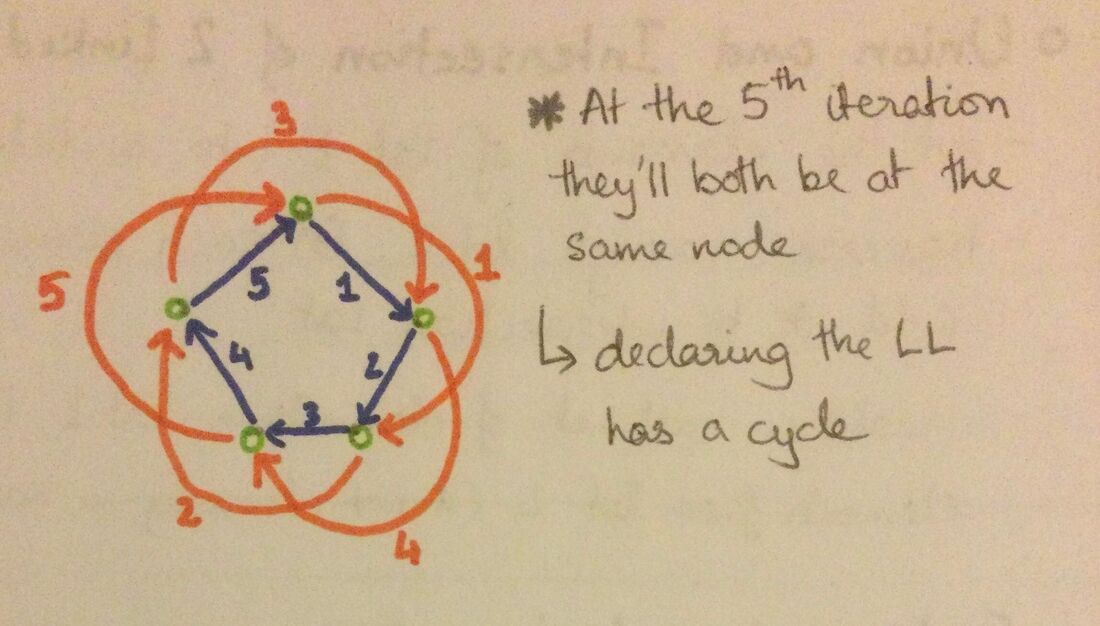 o Union and Intersection of 2 Linked
3
* At the 5th iteration
they'll both be at the
same node
5
5
1
1
4
2
↳ declaring the LL
3
has a cycle
2
4